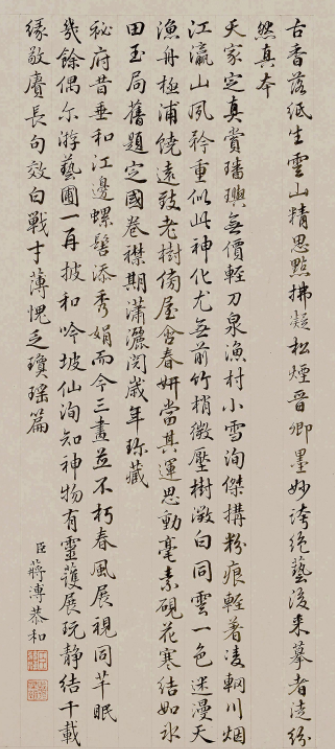 古香落紙生雲山精思點拂凝松煙晉卿墨妙誇絕藝後來摹者徒紛
然真本
天家定真賞璠璵無價輕刀泉漁村小雪洵傑搆粉痕輕著凌輞川烟
江瀛山夙矜重似此神化尤無前竹梢微壓樹澂白同雲一色迷漫天
漁舟極浦饒遠致老樹傍屋舍春妍當其運思動毫素硯花寒結如冰
田玉局舊題定國卷襟期瀟灑閱歲年珎藏
秘府昔垂和江邊螺髻添秀娟而今三畫並不朽春風展視同芊眠
幾餘偶尔游藝圃一再披和吟坡仙洵知神物有靈護展玩静結千載
緣敬賡長句效白戰才薄愧乏瓊瑶篇
臣蔣溥恭和